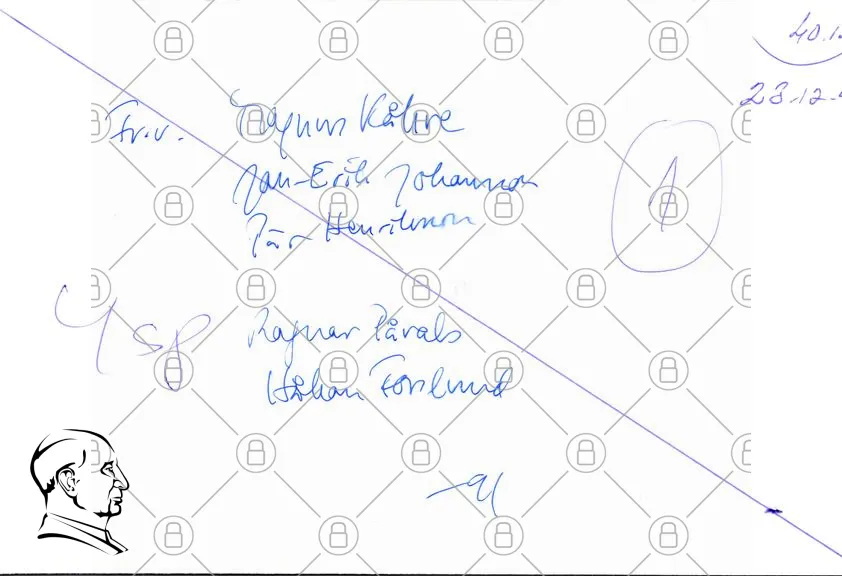 40.1
23.12.
fr.v. Magnus Kåhre
Jan-Erik Johansson
Pär Henriksson
1
4 sp Ragnar Påvals
Håkan Forslund
-91